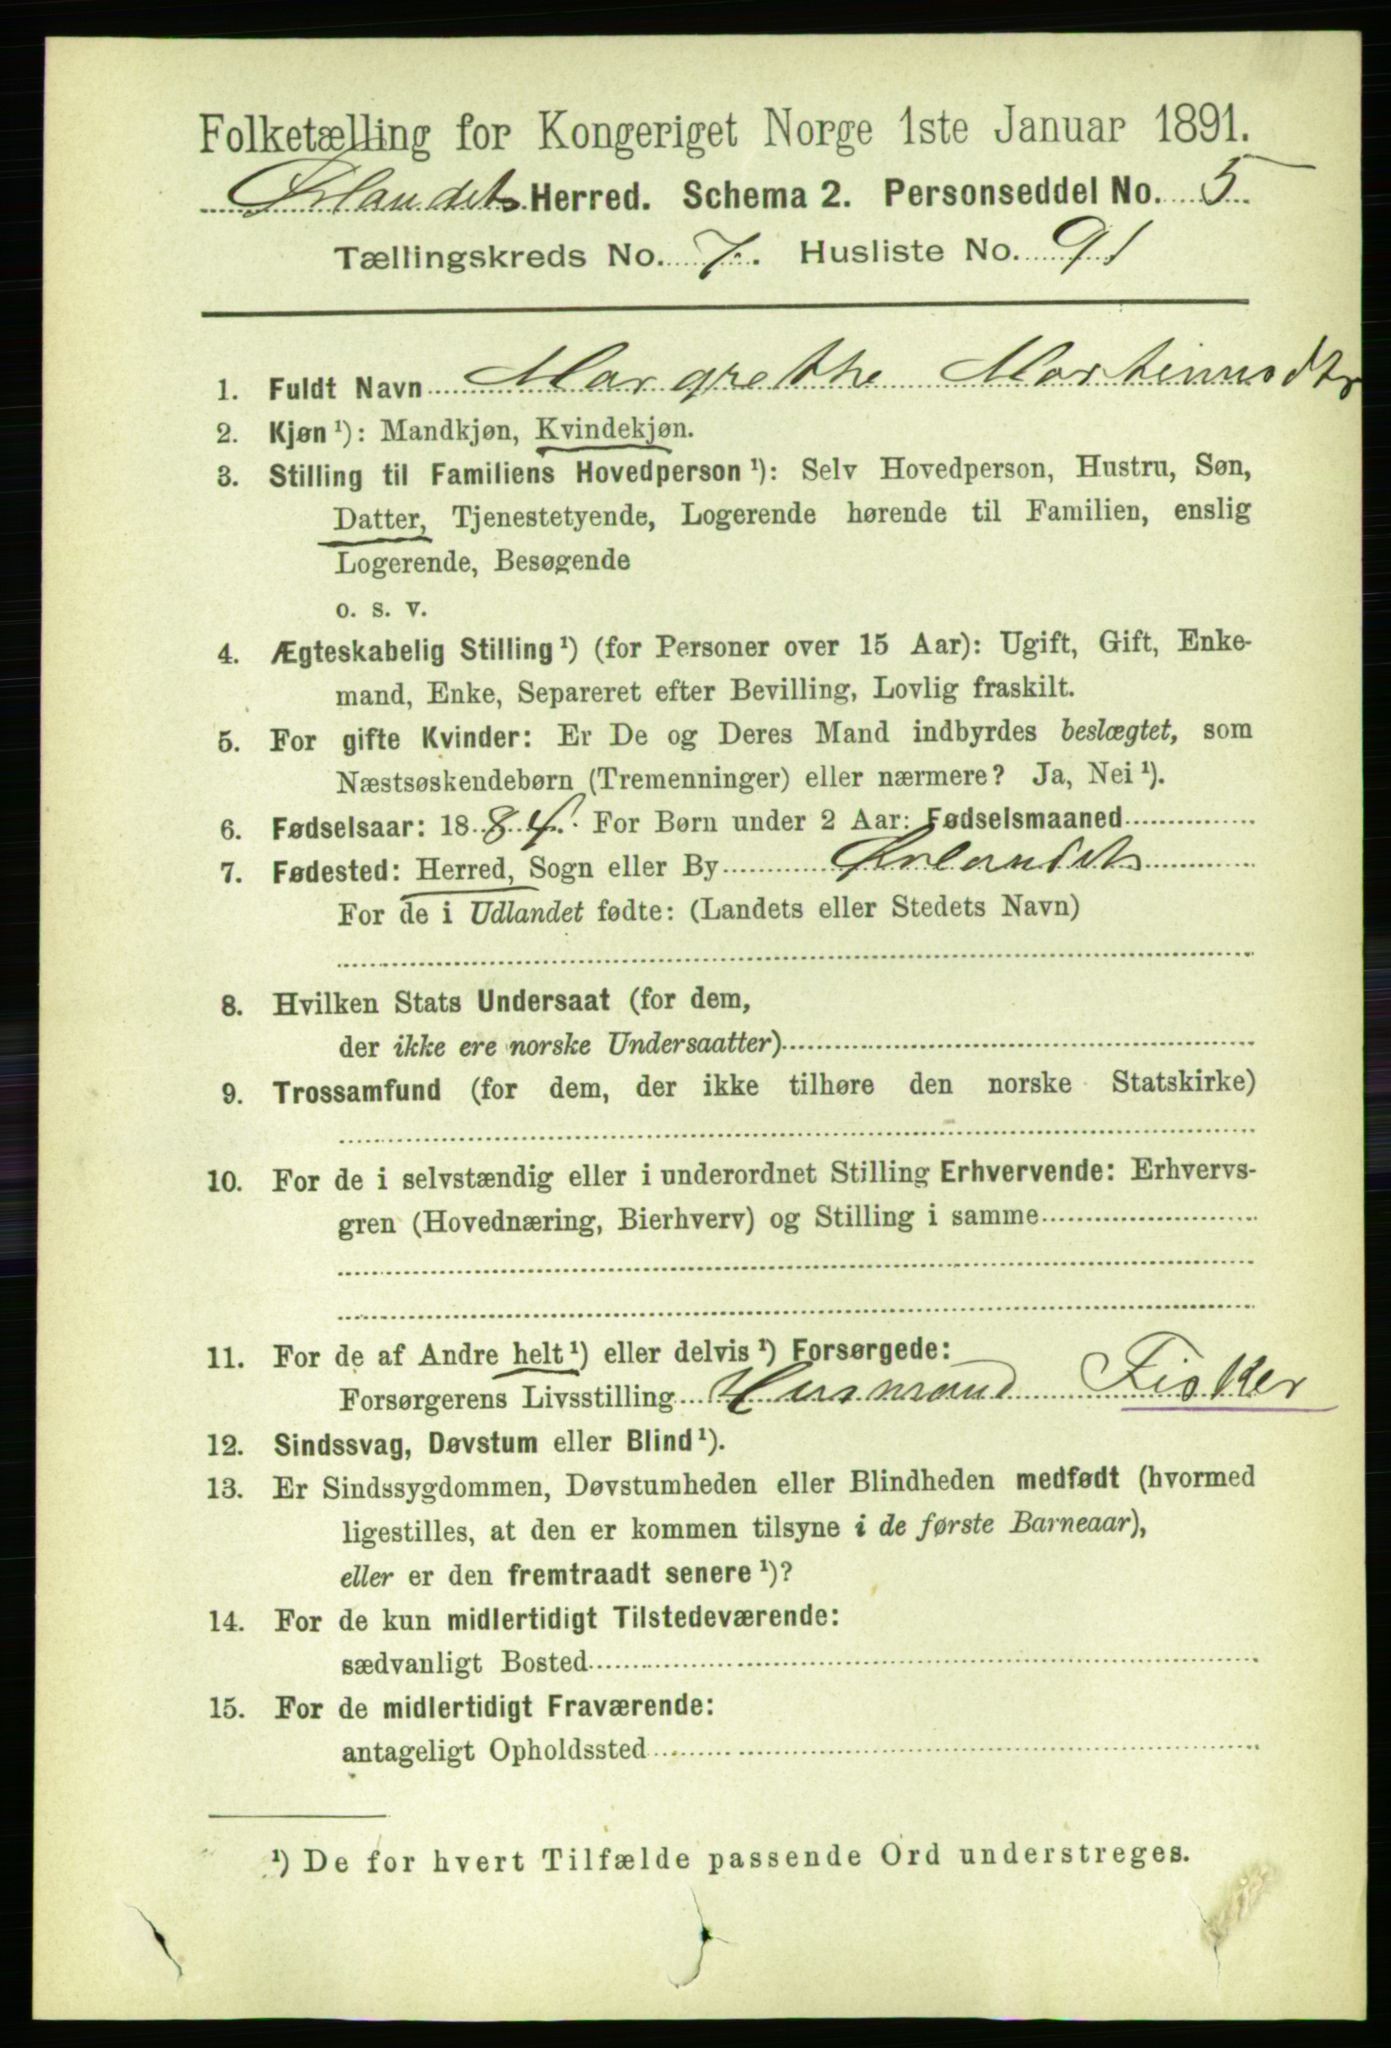 Folketælling for Kongeriget Norge 1ste Januar 1891.
Ørlandets Herred. Schema 2. Personseddel No. 5
Tællingskreds No. 7. Husliste No. 91
1. Fuldt Navn Margrethe Martinusdtr
2. Kjøn ¹): Mandkjøn, Kvindekjøn.
3. Stilling til Familiens Hovedperson ¹): Selv Hovedperson, Hustru, Søn,
Datter, Tjenestetyende, Logerende hørende til Familien, enslig
Logerende, Besøgende
o. s. v.
4. Ægteskabelig Stilling ¹) (for Personer over 15 Aar): Ugift, Gift, Enke-
mand, Enke, Separeret efter Bevilling, Lovlig fraskilt.
5. For gifte Kvinder: Er De og Deres Mand indbyrdes beslægtet, som
Næstsøskendebørn (Tremenninger) eller nærmere? Ja, Nei ¹).
6. Fødselsaar: 1884. For Børn under 2 Aar: Fødselsmaaned
7. Fødested: Herred, Sogn eller By Ørlandets
For de i Udlandet fødte: (Landets eller Stedets Navn)
8. Hvilken Stats Undersaat (for dem,
der ikke ere norske Undersaatter)
9. Trossamfund (for dem, der ikke tilhøre den norske Statskirke)
10. For de i selvstændig eller i underordnet Stilling Erhvervende: Erhvervs-
gren (Hovednæring, Bierhverv) og Stilling i samme
11. For de af Andre helt ¹) eller delvis ¹) Forsørgede:
Forsørgerens Livsstilling Husmand Fisker
12. Sindssvag, Døvstum eller Blind ¹).
13. Er Sindssygdommen, Døvstumheden eller Blindheden medfødt (hvormed
ligestilles, at den er kommen tilsyne i de første Barneaar),
eller er den fremtraadt senere ¹)?
14. For de kun midlertidigt Tilstedeværende:
sædvanligt Bosted
15. For de midlertidigt Fraværende:
antageligt Opholdssted
¹) De for hvert Tilfælde passende Ord understreges.